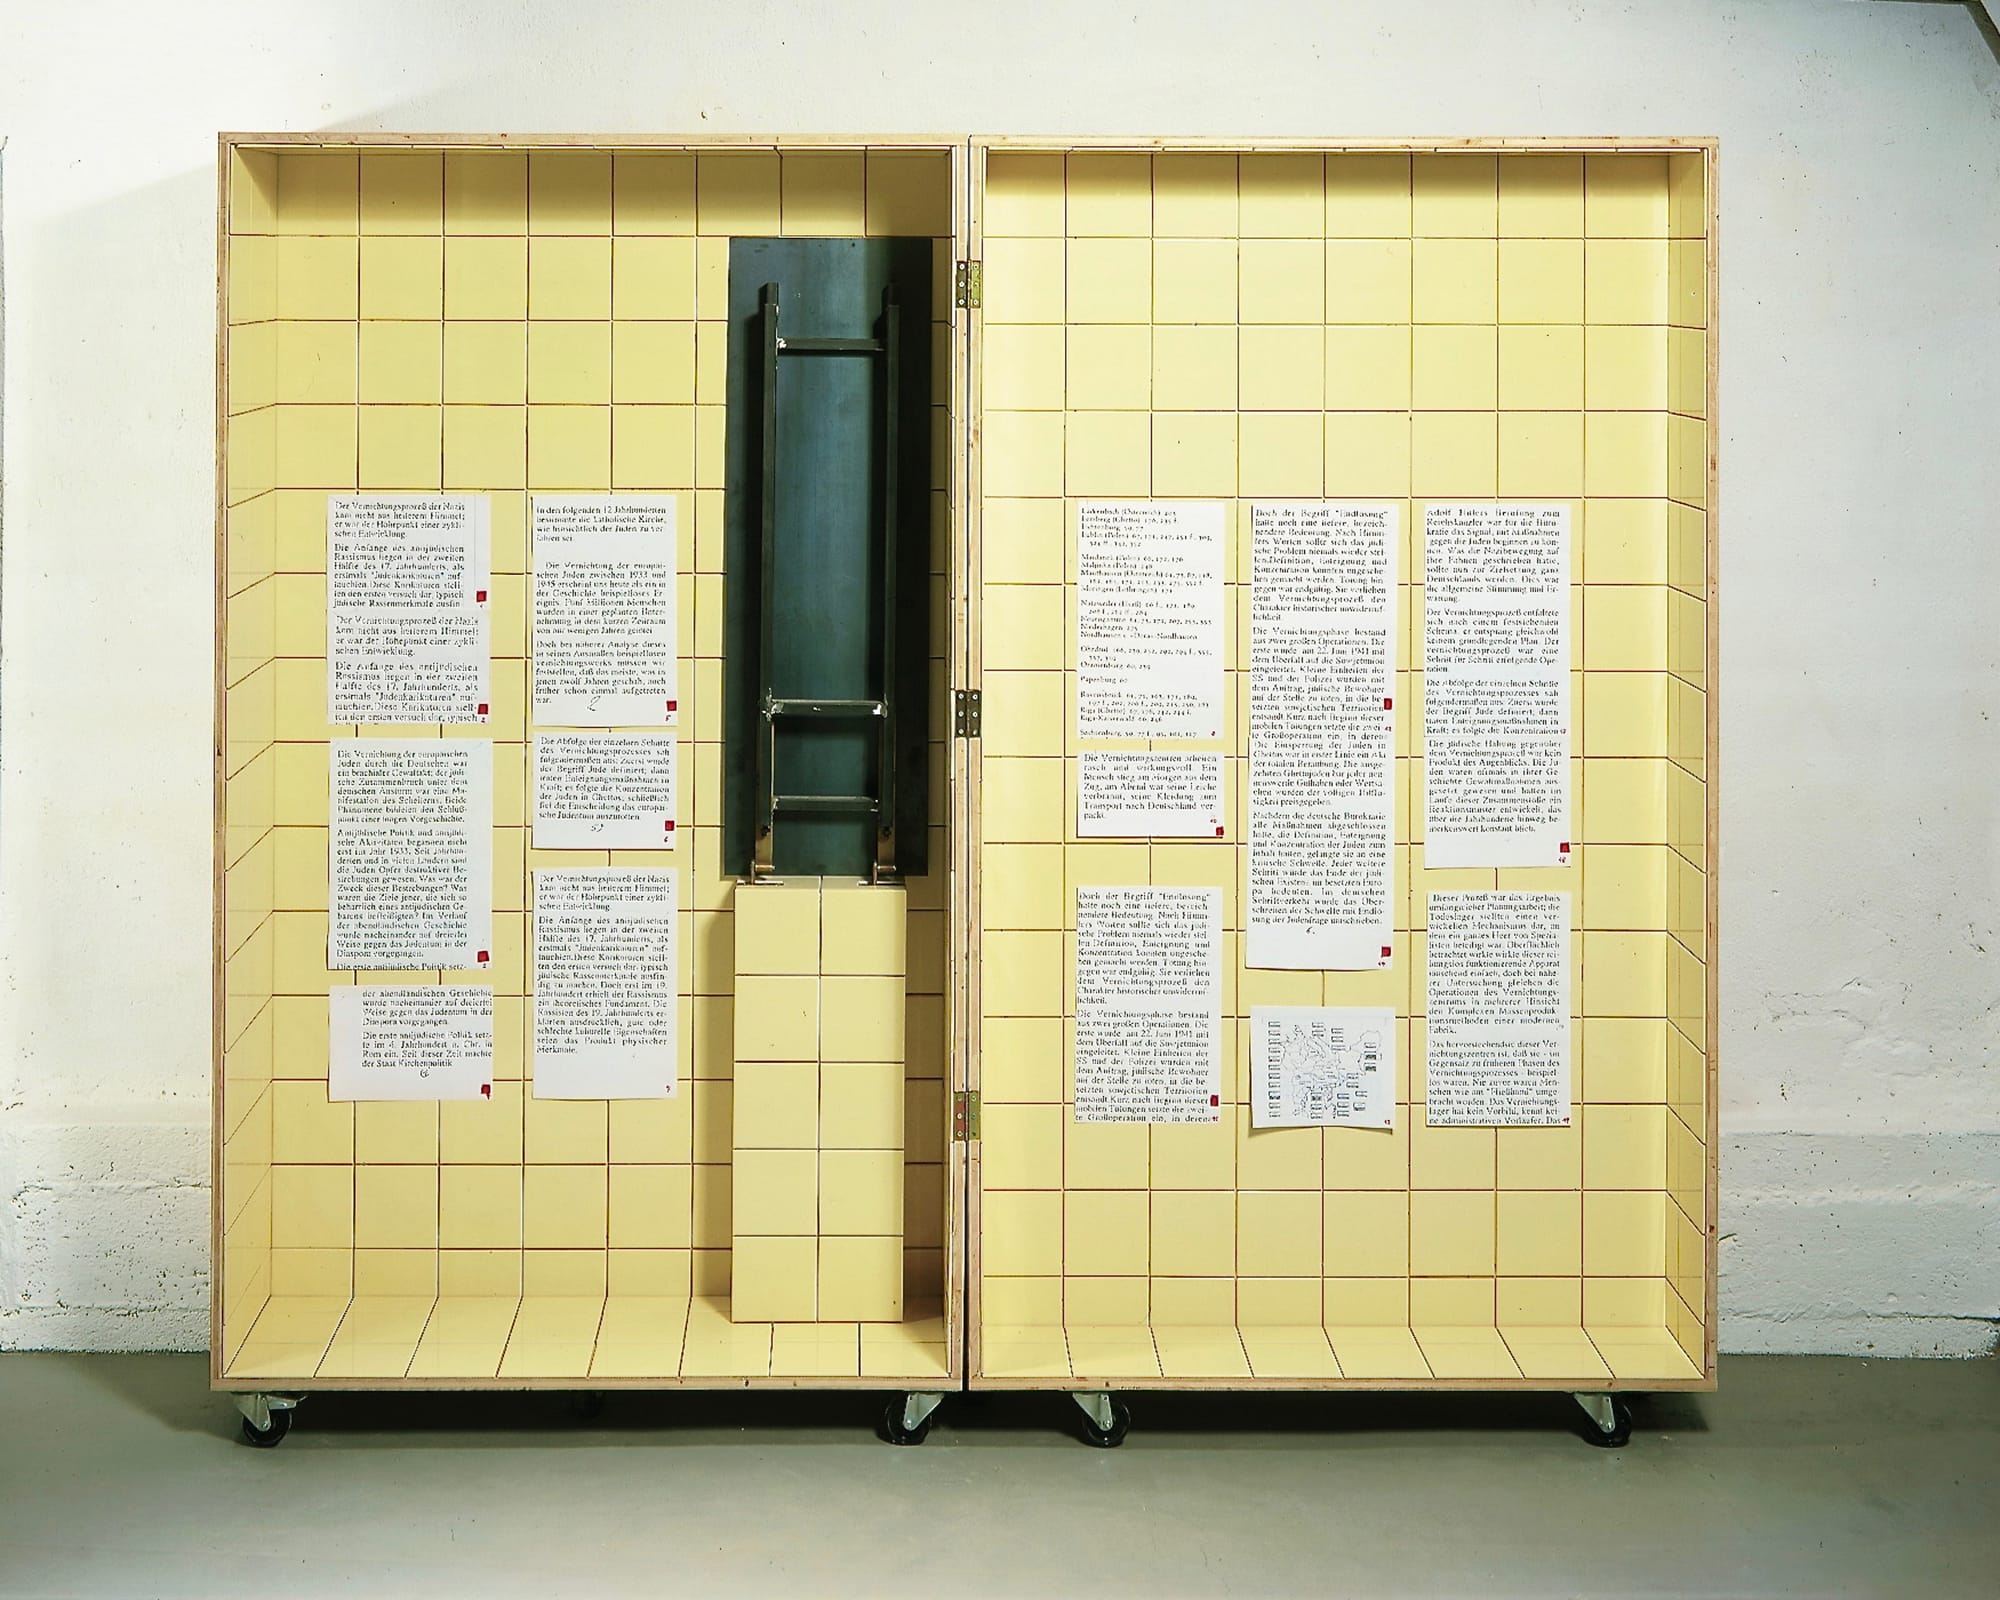 Der Vernichtungsprozeß der Nazis
kam nicht aus heiterem Himmel;
er war der Höhepunkt einer zykli-
schen Entwicklung.
Die Anfänge des antijüdischen
Rassismus liegen in der zweiten
Hälfte des 17. Jahrhunderts, als
erstmals "Judenkarikaturen" auf-
tauchten. Diese Karikaturen stell-
ten den ersten versuch dar, typisch
jüdische Rassenmerkmale ausfin-
Der Vernichtungsprozeß der Nazis
kam nicht aus heiterem Himmel;
er war der Höhepunkt einer zykli-
schen Entwicklung.
Die Anfänge des antijüdischen
Rassismus liegen in der zweiten
Hälfte des 17. Jahrhunderts, als
erstmals "Judenkarikaturen" auf-
tauchten. Diese Karikaturen stell-
ten den ersten versuch dar, typisch
2
Die Vernichtung der europäischen
Juden durch die Deutschen war
ein brachialer Gewaltakt; der jüdi-
sche Zusammenbruch unter dem
deutschen Ansturm war eine Ma-
nifestation des Scheiterns. Beide
Phänomene bildeten den Schluß-
punkt einer langen Vorgeschichte.
Antijüdische Politik und antijüdi-
sche Aktivitäten begannen nicht
erst im Jahr 1933. Seit Jahrhun-
derten und in vielen Ländern sind
die Juden Opfer destruktiver Be-
strebungen gewesen. Was war der
Zweck dieser Bestrebungen? Was
waren die Ziele jener, die sich so
beharrlich eines antijüdischen Ge-
barens befleißigten? Im Verlauf
der abendländischen Geschichte
wurde nacheinander auf dreierlei
Weise gegen das Judentum in der
Diaspora vorgegangen.
Die erste antijüdische Politik setz-
der abendländischen Geschichte
wurde nacheinander auf dreierlei
Weise gegen das Judentum in der
Diaspora vorgegangen.
Die erste antijüdische Politik setz-
te im 4. Jahrhundert n. Chr. in
Rom ein. Seit dieser Zeit machte
der Staat Kirchenpolitik
In den folgenden 12 Jahrhunderten
bestimmte die katholische Kirche,
wie hinsichtlich der Juden zu ver-
fahren sei.
Die Vernichtung der europäi-
schen Juden zwischen 1933 und
1945 erscheint uns heute als ein in
der Geschichte beispielloses Er-
eignis. Fünf Millionen Menschen
wurden in einer geplanten Unter-
nehmung in dem kurzen Zeitraum
von nur wenigen Jahren getötet
Doch bei näherer Analyse dieses
in seinen Ausmaßen beispiellosen
vernichtungswerks müssen wir
feststellen, daß das meiste, was in
jenen zwölf Jahren geschah, auch
früher schon einmal aufgetreten
war.
5
Die Abfolge der einzelnen Schritte
des Vernichtungsprozesses sah
folgendermaßen aus: Zuerst wurde
der Begriff Jude definiert; dann
traten Enteignungsmaßnahmen in
Kraft; es folgte die Konzentration
der Juden in Ghettos; schließlich
fiel die Entscheidung das europäi-
sche Judentum auszurotten.
6
Der Vernichtungsprozeß der Nazis
kam nicht aus heiterem Himmel;
er war der Höhepunkt einer zykli-
schen Entwicklung.
Die Anfänge des antijüdischen
Rassismus liegen in der zweiten
Hälfte des 17. Jahrhunderts, als
erstmals "Judenkarikaturen" auf-
tauchten. Diese Karikaturen stell-
ten den ersten versuch dar, typisch
jüdische Rassenmerkmale ausfin-
dig zu machen. Doch erst im 19.
Jahrhundert erhielt der Rassismus
ein theoretisches Fundament. Die
Rassisten des 19. Jahrhunderts er-
klärten ausdrücklich, gute oder
schlechte kulturelle Eigenschaften
seien das Produkt physischer
Merkmale.
Lemberg (Ghetto)
Majdanek (Polen)
Mauthausen (Österreich)
Natzweiler (Elsaß)
Neuengamme
Niederhagen
Ohrdruf
Oranienburg
Papenburg 60
Ravensbrück
Riga (Ghetto)
Riga-Kaiserwald
Sachsenburg
Die Vernichtungszentren arbeiten
rasch und wirkungsvoll. Ein
Mensch stieg am Morgen aus dem
Zug, am Abend war seine Leiche
verbrannt, seine Kleidung zum
Transport nach Deutschland ver-
packt.
Doch der Begriff "Endlösung"
hatte noch eine tiefere, bezeich-
nendere Bedeutung. Nach Himm-
lers Worten sollte sich das jüdi-
sche Problem niemals wieder stel-
len. Definition, Enteignung und
Konzentration konnten ungesche-
hen gemacht werden. Tötung hin-
gegen war endgültig. Sie verliehen
dem Vernichtungsprozeß den
Charakter historischer unwiderruf-
lichkeit.
Die Vernichtungsphase bestand
aus zwei großen Operationen. Die
erste wurde am 22. Juni 1941 mit
dem Überfall auf die Sowjetunion
eingeleitet. Kleine Einheiten der
SS und der Polizei wurden mit
dem Auftrag, jüdische Bewohner
auf der Stelle zu töten, in die be-
setzten sowjetischen Territorien
entsandt. Kurz nach Beginn dieser
mobilen Tötungen setzte die zwei-
te Großoperation ein, in deren
Doch der Begriff "Endlösung"
hatte noch eine tiefere, bezeich-
nendere Bedeutung. Nach Himm-
lers Worten sollte sich das jüdi-
sche Problem niemals wieder stel-
len. Definition, Enteignung und
Konzentration konnten ungesche-
hen gemacht werden. Tötung hin-
gegen war endgültig. Sie verliehen
dem Vernichtungsprozeß den
Charakter historischer unwiderruf-
lichkeit.
Die Vernichtungsphase bestand
aus zwei großen Operationen. Die
erste wurde am 22. Juni 1941 mit
dem Überfall auf die Sowjetunion
eingeleitet. Kleine Einheiten der
SS und der Polizei wurden mit
dem Auftrag, jüdische Bewohner
auf der Stelle zu töten, in die be-
setzten sowjetischen Territorien
entsandt. Kurz nach Beginn dieser
mobilen Tötungen setzte die zwei-
te Großoperation ein, in deren
Die Einsperrung der Juden in
Ghettos war in erster Linie ein Akt
der totalen Beraubung. Die ausge-
zehrten Ghettojuden bar jeder nen-
nenswerte Guthaben oder Wertsa-
chen wurden der völligen Hilflo-
sigkeit preisgegeben.
Nachdem die deutsche Bürokratie
alle Maßnahmen abgeschlossen
hatte, die Definition, Enteignung
und Konzentration der Juden zum
Inhalt hatten, gelangte sie an eine
kritische Schwelle. Jeder weitere
Schritt würde das Ende der jüdi-
schen Existenz im besetzten Euro-
pa bedeuten. Im deutschen
Schriftverkehr wurde das Über-
schreiten der Schwelle mit Endlö-
sung der Judenfrage umschrieben.
6.
Adolf Hitlers Berufung zum
Reichskanzler war für die Büro-
kratie das Signal, mit Maßnahmen
gegen die Juden beginnen zu kön-
nen. Was die Nazibewegung auf
ihre Fahnen geschrieben hatte,
sollte nun zur Zielsetzung ganz
Deutschlands werden. Dies war
die allgemeine Stimmung und Er-
wartung.
Der Vernichtungsprozeß entfaltete
sich nach einem feststehenden
Schema, er entsprang gleichwohl
keinem grundlegenden Plan. Der
vernichtungsprozeß war eine
Schritt für Schritt erfolgende Ope-
ration.
Die Abfolge der einzelnen Schritte
des Vernichtungsprozesses sah
folgendermaßen aus: Zuerst wurde
der Begriff Jude definiert; dann
traten Enteignungsmaßnahmen in
Kraft; es folgte die Konzentration
Die jüdische Haltung gegenüber
dem Vernichtungsprozeß war kein
Produkt des Augenblicks. Die Ju-
den waren oftmals in ihrer Ge-
schichte Gewaltmaßnahmen aus-
gesetzt gewesen und hatten im
Laufe dieser Zusammenstöße ein
Reaktionsmuster entwickelt, das
über die Jahrhunderte hinweg be-
merkenswert konstant blieb.
Dieser Prozeß war das Ergebnis
umfangreicher Planungsarbeit; die
Todeslager stellten einen ver-
wickelten Mechanismus dar, an
dem ein ganzes Heer von Spezia-
listen beteiligt war. Oberflächlich
betrachtet wirkte dieser rei-
bungslos funktionierende Apparat
täuschend einfach, doch bei nähe-
rer Untersuchung gleichen die
Operationen des Vernichtungs-
zentrums in mehrerer Hinsicht
den Komplexen Massenproduk-
tionsmethoden einer modernen
Fabrik.
Das hervorstechendste dieser Ver-
nichtungszentren ist, daß sie - im
Gegensatz zu früheren Phasen des
Vernichtungsprozesses - beispiel-
los waren. Nie zuvor waren Men-
schen wie am "Fließband" umge-
bracht worden. Das Vernichtungs-
lager hat kein Vorbild, kennt kei-
ne administrativen Vorläufer. Das